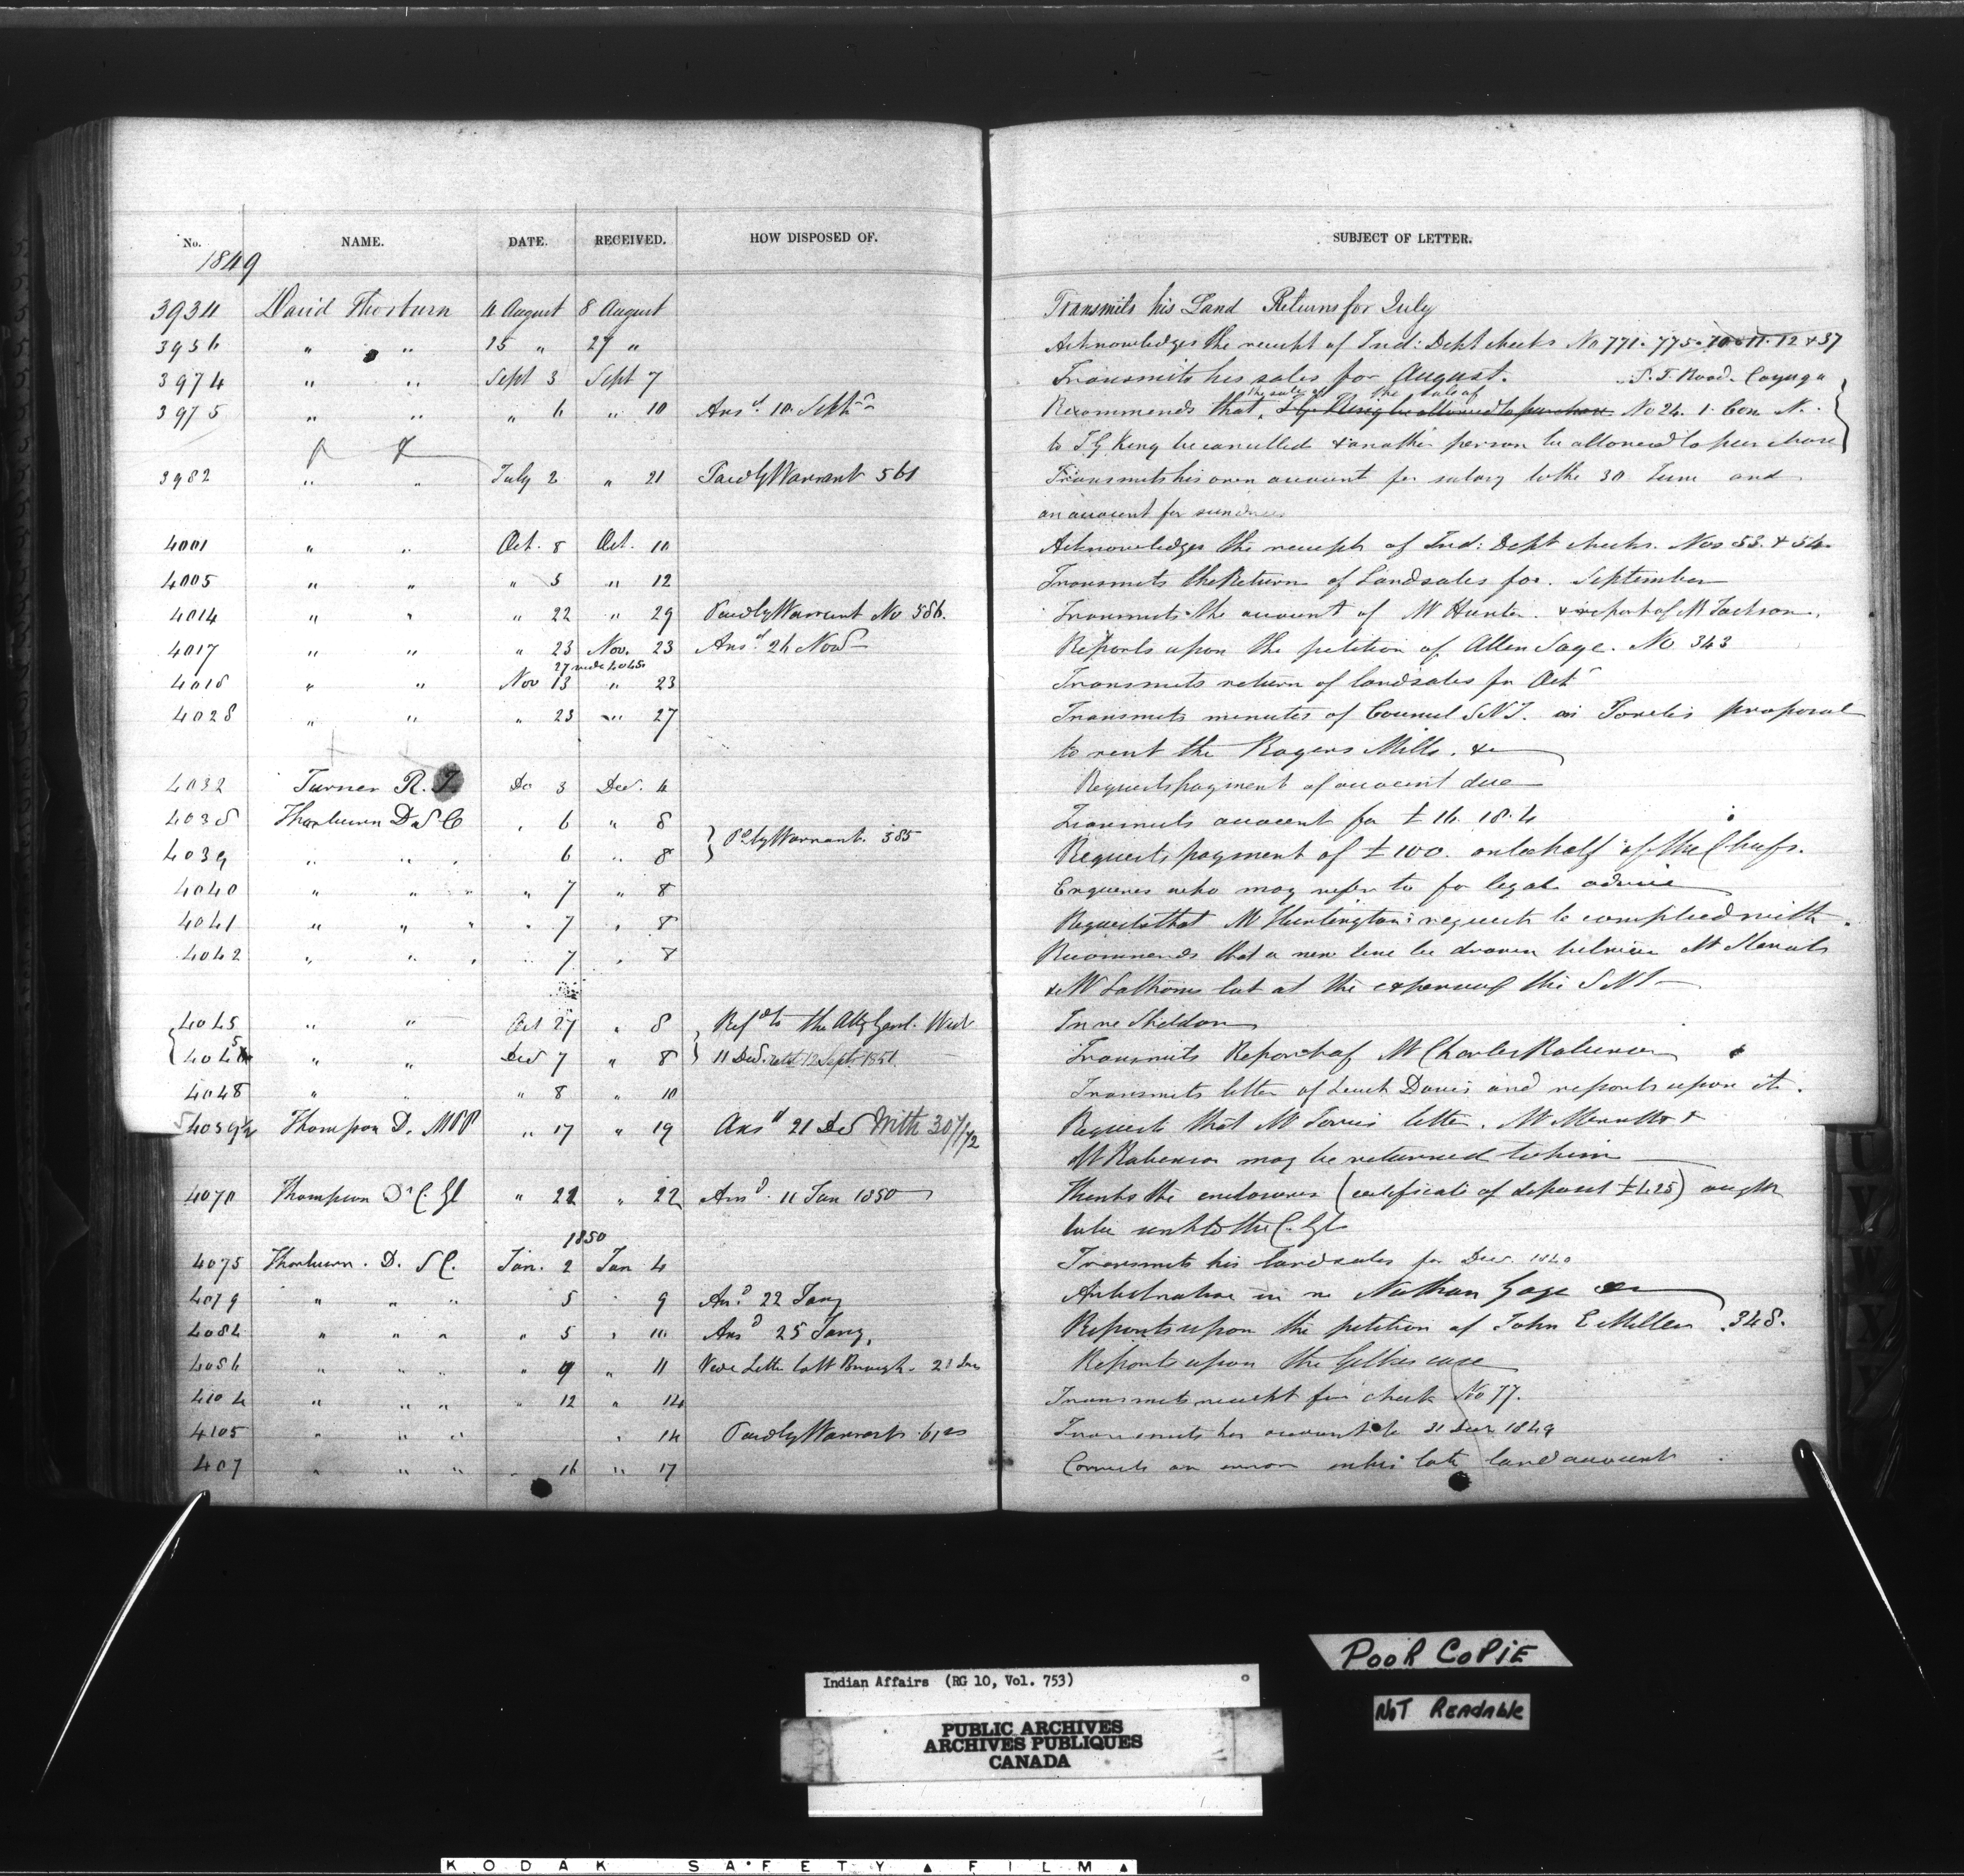 No. NAME. DATE. RECEIVED. HOW DISPOSED OF. SUBJECT OF LETTER.
1849
3934 David Thorburn 4 August 8 August Transmits his Land Returns for July
3956 " " 25 " 27 " Acknowledges the receipt of Ind: Dept checks No 771. 775. 10 11. 12 & 37
3974 " " Sept 3 Sept 7 Transmits his sales for August. S. T. Road. Cayuga
3975 " " " 6 " 10 Ansd. 10. Septr Recommends that, the sale of No 24. 1. Con N.
to T G King be cancelled & another person be allowed to purchase
3982 " " July 2 " 21 Paid by Warrant 561 Transmits his own account for salary to the 30 June and
an account for sundries
4001 " " Oct. 8 Oct. 10 Acknowledges the receipt of Ind: Dept checks. Nos 53. & 54.
4005 " " " 5 " 12 Transmits the Return of Land sales for. September
4014 " " " 22 " 29 Paid by Warrant No 586. Transmits the account of Mr Hunter. & report of Mr Jackson.
4017 " " " 23 Nov. 23 Ansd 24 Novr Reports upon the petition of Allen Sage. No 343
27 vide 4045
4018 " " Nov 13 " 23 Transmits return of land sales for Octr
4028 " " " 23 " 27 Transmits minutes of Council S.N.I. on proposal
to rent the Rogers Mills. &c
4032 Turner R. T. De 3 Dec. 4 Requests payment of account due
4038 Thorburn D S C " 6 " 8 Transmits account for £ 16. 18. 4
4039 " " " 6 " 8 } Pd by Warrant. 585 Requests payment of £ 100. on behalf of the Chiefs.
4040 " " " " 7 " 8 Enquires who may refer to for legal advice
4041 " " " " 7 " 8 Requests that Mr Huntington's request be complied with.
4042 " " " " 7 " 8 Recommends that a new line be drawn between Mr
& Mr lot at the expense of the S N I
4045 " " Oct 27 " 8 } Refd to the Atty Genl. West In re Sheldon
" " Dec 7 " 8 } 11 Dec. retd 12 Sept. 1851. Transmits Report of Mr Charles Robinson
4048 " " " 8 " 10 Transmits letter of Davis and reports upon it.
4059½ Thompson D. MPP " 17 " 19 Ansd 21 Dec With 30/1/72 Requests that Mr letter. Mr Merritts &
Mr Robinson may be returned to him
4070 Thompson D. C. Gl " 22 " 22 Ansd. 11 Jan 1850 Thinks the enclosures (certificate of deposit £425) ought
to be sent to the C. Gl
1850
4075 Thorburn. D. S C. Jan. 2 Jan 4 Transmits his land sales for Dec. 1849
4079 " " " 5 " 9 Ansd 22 Jany in re Nathan Gage &c
4084 " " " " 5 " 10 Ansd 25 Jany. Reports upon the petition of John E Miller. 348.
4086 " " " " 9 " 11 Vide Letter to Mr Brough. 21 Reports upon the Gilkes case
4104 " " " " 12 " 14 Transmits receipt for check No 77.
4105 " " " " 14 Paid by Warrant Transmits his account to 31 Decr 1849
407 " " " " 16 " 17 Corrects an error in his late land account
POOR COPIE
NOT READABLE
Indian Affairs (RG 10, Vol. 753)
PUBLIC ARCHIVES
ARCHIVES PUBLIQUES
CANADA
KODAK SAFETY FILM